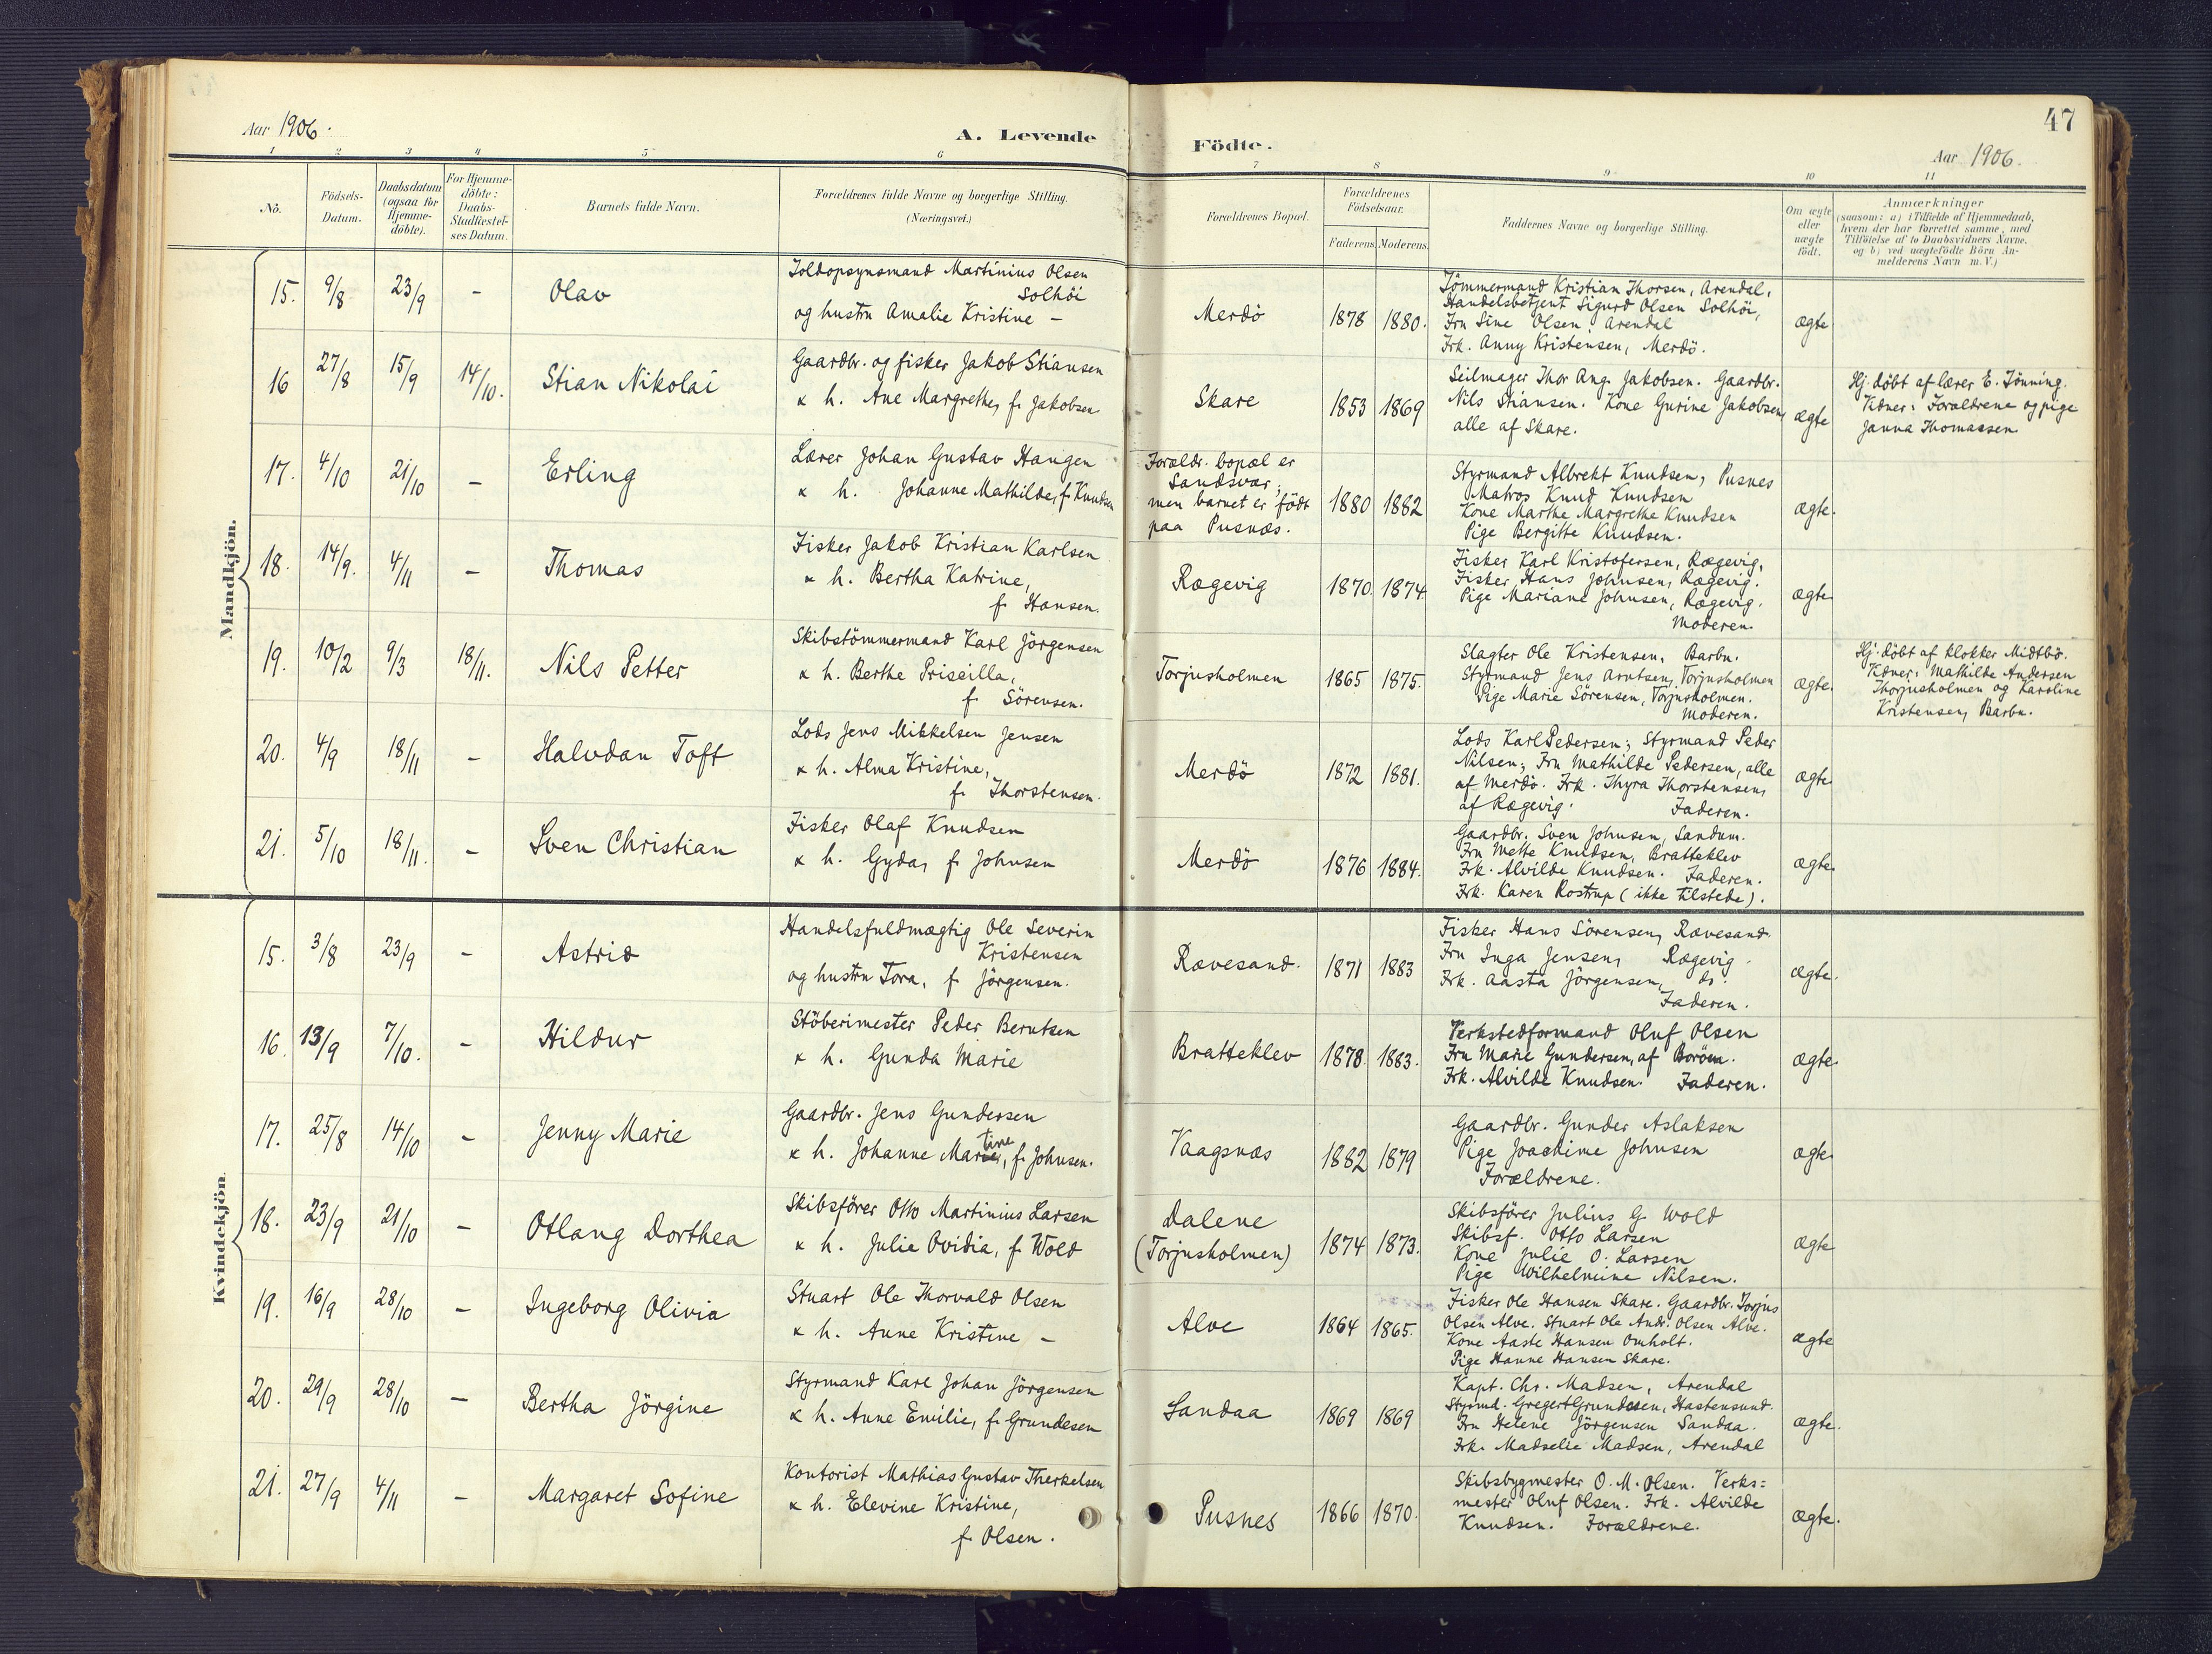 47
Aar 1906.
A. Levende
Födte.
Aar 1906.
1 2 3 4 5 6 7 8 9 10 11
No.
Födsels-
Datum.
Daabsdatum
(ogsaa for
Hjemme-
döbte).
For Hjemme-
döbte:
Daabs-
Stadfæstel-
ses Datum.
Barnets fulde Navn.
Forældrenes fulde Navne og borgerlige Stilling.
(Næringsvei.)
Forældrenes Bopæl.
Forældrenes
Födselsaar.
Faderens.
Moderens.
Faddernes Navne og borgerlige Stilling.
Om ægte
eller
uægte
födt.
Anmærkninger
(saasom: a) i Tilfælde af Hjemmedaab,
hvem der har forrettet samme, med
Tilföielse af to Daabsvidners Navne,
og b) ved uægtefödte Börn An-
melderens Navn m. V.)
Mandkjön.
15. 9/8 23/9 - Olav
Toldopsynsmand Martinius Olsen
Solhöi
og hustru Amalie Kristine -
Merdö 1878 1880.
Tömmermand Kristian Thorsen, Arendal,
Handelsbetjent Sigurd Olsen Solhöi,
Fru Sine Olsen, Arendal
Frk. Anny Kristensen, Merdö.
ægte
16 27/8 15/9 14/10. Stian Nikolai
Gaardbr. og fisker Jakob Stiansen
& h. Ane Margrethe, f. Jakobsen
Skare 1853 1869
Seilmager Thor Ang. Jakobsen. Gaardbr.
Nils Stiansen. Kone Gurine Jakobsen,
alle af Skare.
ægte
Hj. döbt af lærer E. Tönning.
Vidner: Forældrene og pige
Janna Thomassen
17. 4/10 21/10 - Erling
Lærer Johan Gustav Haugen
& h. Johanne Mathilde, f. Knudsen
Forældr. bopæl er
Sandsvær,
men barnet er födt
paa Pusnæs.
1880 1882
Styrmand Albrekt Knudsen, Pusnes
Matros Knud Knudsen
Kone Marthe Margrethe Knudsen
Pige Bergitte Knudsen.
ægte.
18. 14/9. 4/11 - Thomas
Fisker Jakob Kristian Karlsen
& h. Bertha Katrine,
f. Hansen.
Rægevig 1870. 1874.
Fisker Karl Kristofersen, Rægevig,
Fisker Hans Johnsen, Rægevig.
Pige Mariane Johnsen, Rægevig.
Moderen.
ægte
19. 10/2 9/3 18/11. Nils Petter
Skibstömmermand Karl Jörgensen
& h. Berthe Priscilla,
f. Sörensen.
Torjusholmen 1865 1875.
Slagter Ole Kristensen, Barbu.
Styrmand Jens Arntsen, Torjusholmen
Pige Marie Sörensen, Torjusholmen.
Moderen.
ægte.
Hj. döbt af klokker Midtbö.
Vidner: Mathilde Andersen
Thorjusholmen og Karoline
Kristensen, Barbu.
20. 4/9 18/11 - Halvdan Toft
Lods Jens Mikkelsen Jensen
& h. Alma Kristine,
f. Thorstensen.
Merdö 1872 1881.
Lods Karl Pedersen; Styrmand Peder
Nilsen; Fru Mathilde Pedersen, alle
af Merdö. Frk. Thyra Thorstensen,
af Rægevig. Faderen.
ægte
21. 5/10 18/11. - Sven Christian
Fisker Olaf Knudsen
& h. Gyda, f. Johnsen
Merdö 1876 1884.
Gaardbr. Sven Johnsen, Sandum.
Fru Mette Knudsen, Bratteklev
Frk. Alvilde Knudsen. Faderen.
Frk. Karen Rostrup (ikke tilstede).
ægte
Kvindekjön.
15. 3/8 23/9 - Astrid
Handelsfuldmægtig Ole Severin
Kristensen
og hustru Tora, f. Jörgensen.
Rævesand. 1871 1883
Fisker Hans Sörensen, Rævesand.
Fru Inga Jensen, Rægevig.
Frk. Aasta Jörgensen, do.
Faderen.
ægte.
16. 13/9 7/10. - Hildur
Stöberimester Peder Berntsen
& h. Gunda Marie
Bratteklev 1878. 1883.
Verkstedformand Oluf Olsen
Fru Marie Gundersen, af Boröen.
Frk. Alvilde Knudsen. Faderen.
ægte
17. 25/8 14/10 - Jenny Marie
Gaardbr. Jens Gundersen
& h. Johanne Martine, f. Johnsen.
Vaagsnæs 1882 1879
Gaardbr. Gunder Aslaksen
Pige Joachime Johnsen
Forældrene.
ægte
18. 23/9 21/10 - Otlaug Dorthea
Skibsförer Otto Martinius Larsen
& h. Julie Ovidia, f. Wold
Dalene
(Torjusholmen)
1874 1873.
Skibsförer Julius G. Wold
Skibsf. Otto Larsen
Kone Julie O. Larsen
Pige Wilhelmine Nilsen.
ægte
19. 16/9 28/10 - Ingeborg Olivia
Stuart Ole Thorvald Olsen
& h. Anne Kristine -
Alve 1864 1865.
Fisker Ole Hansen Skare. Gaardbr. Torjus
Olsen Alve. Stuart Ole Andr. Olsen Alve.
Kone Aaste Hansen Omholt.
Pige Hanne Hansen Skare.
ægte
20. 29/9 28/10 - Bertha Jörgine
Styrmand Karl Johan Jörgensen
& h. Anne Emilie, f. Grundesen
Sandaa 1869 1869
Kapt. Chr. Madsen, Arendal
Styrmd. Gregert Grundesen, Hastensund.
Fru Helene Jörgensen Sandaa.
Frk. Madselie Madsen, Arendal
ægte.
21. 27/9 4/11 - Margaret Sofine
Kontorist Mathias Gustav Therkelsen
& h. Elevine Kristine,
f. Olsen.
Pusnes 1866 1870.
Skibsbygmester O. M. Olsen. Verks=
mester Oluf Olsen. Frk. Alvilde
Knudsen. Forældrene.
ægte.